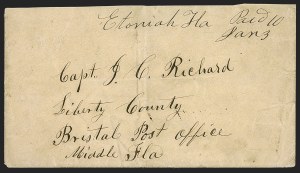 Etoniah Fla Paid 10
Jan 3
Capt. J. C. Richard
Liberty County
Bristal Post Office
Middle Fla